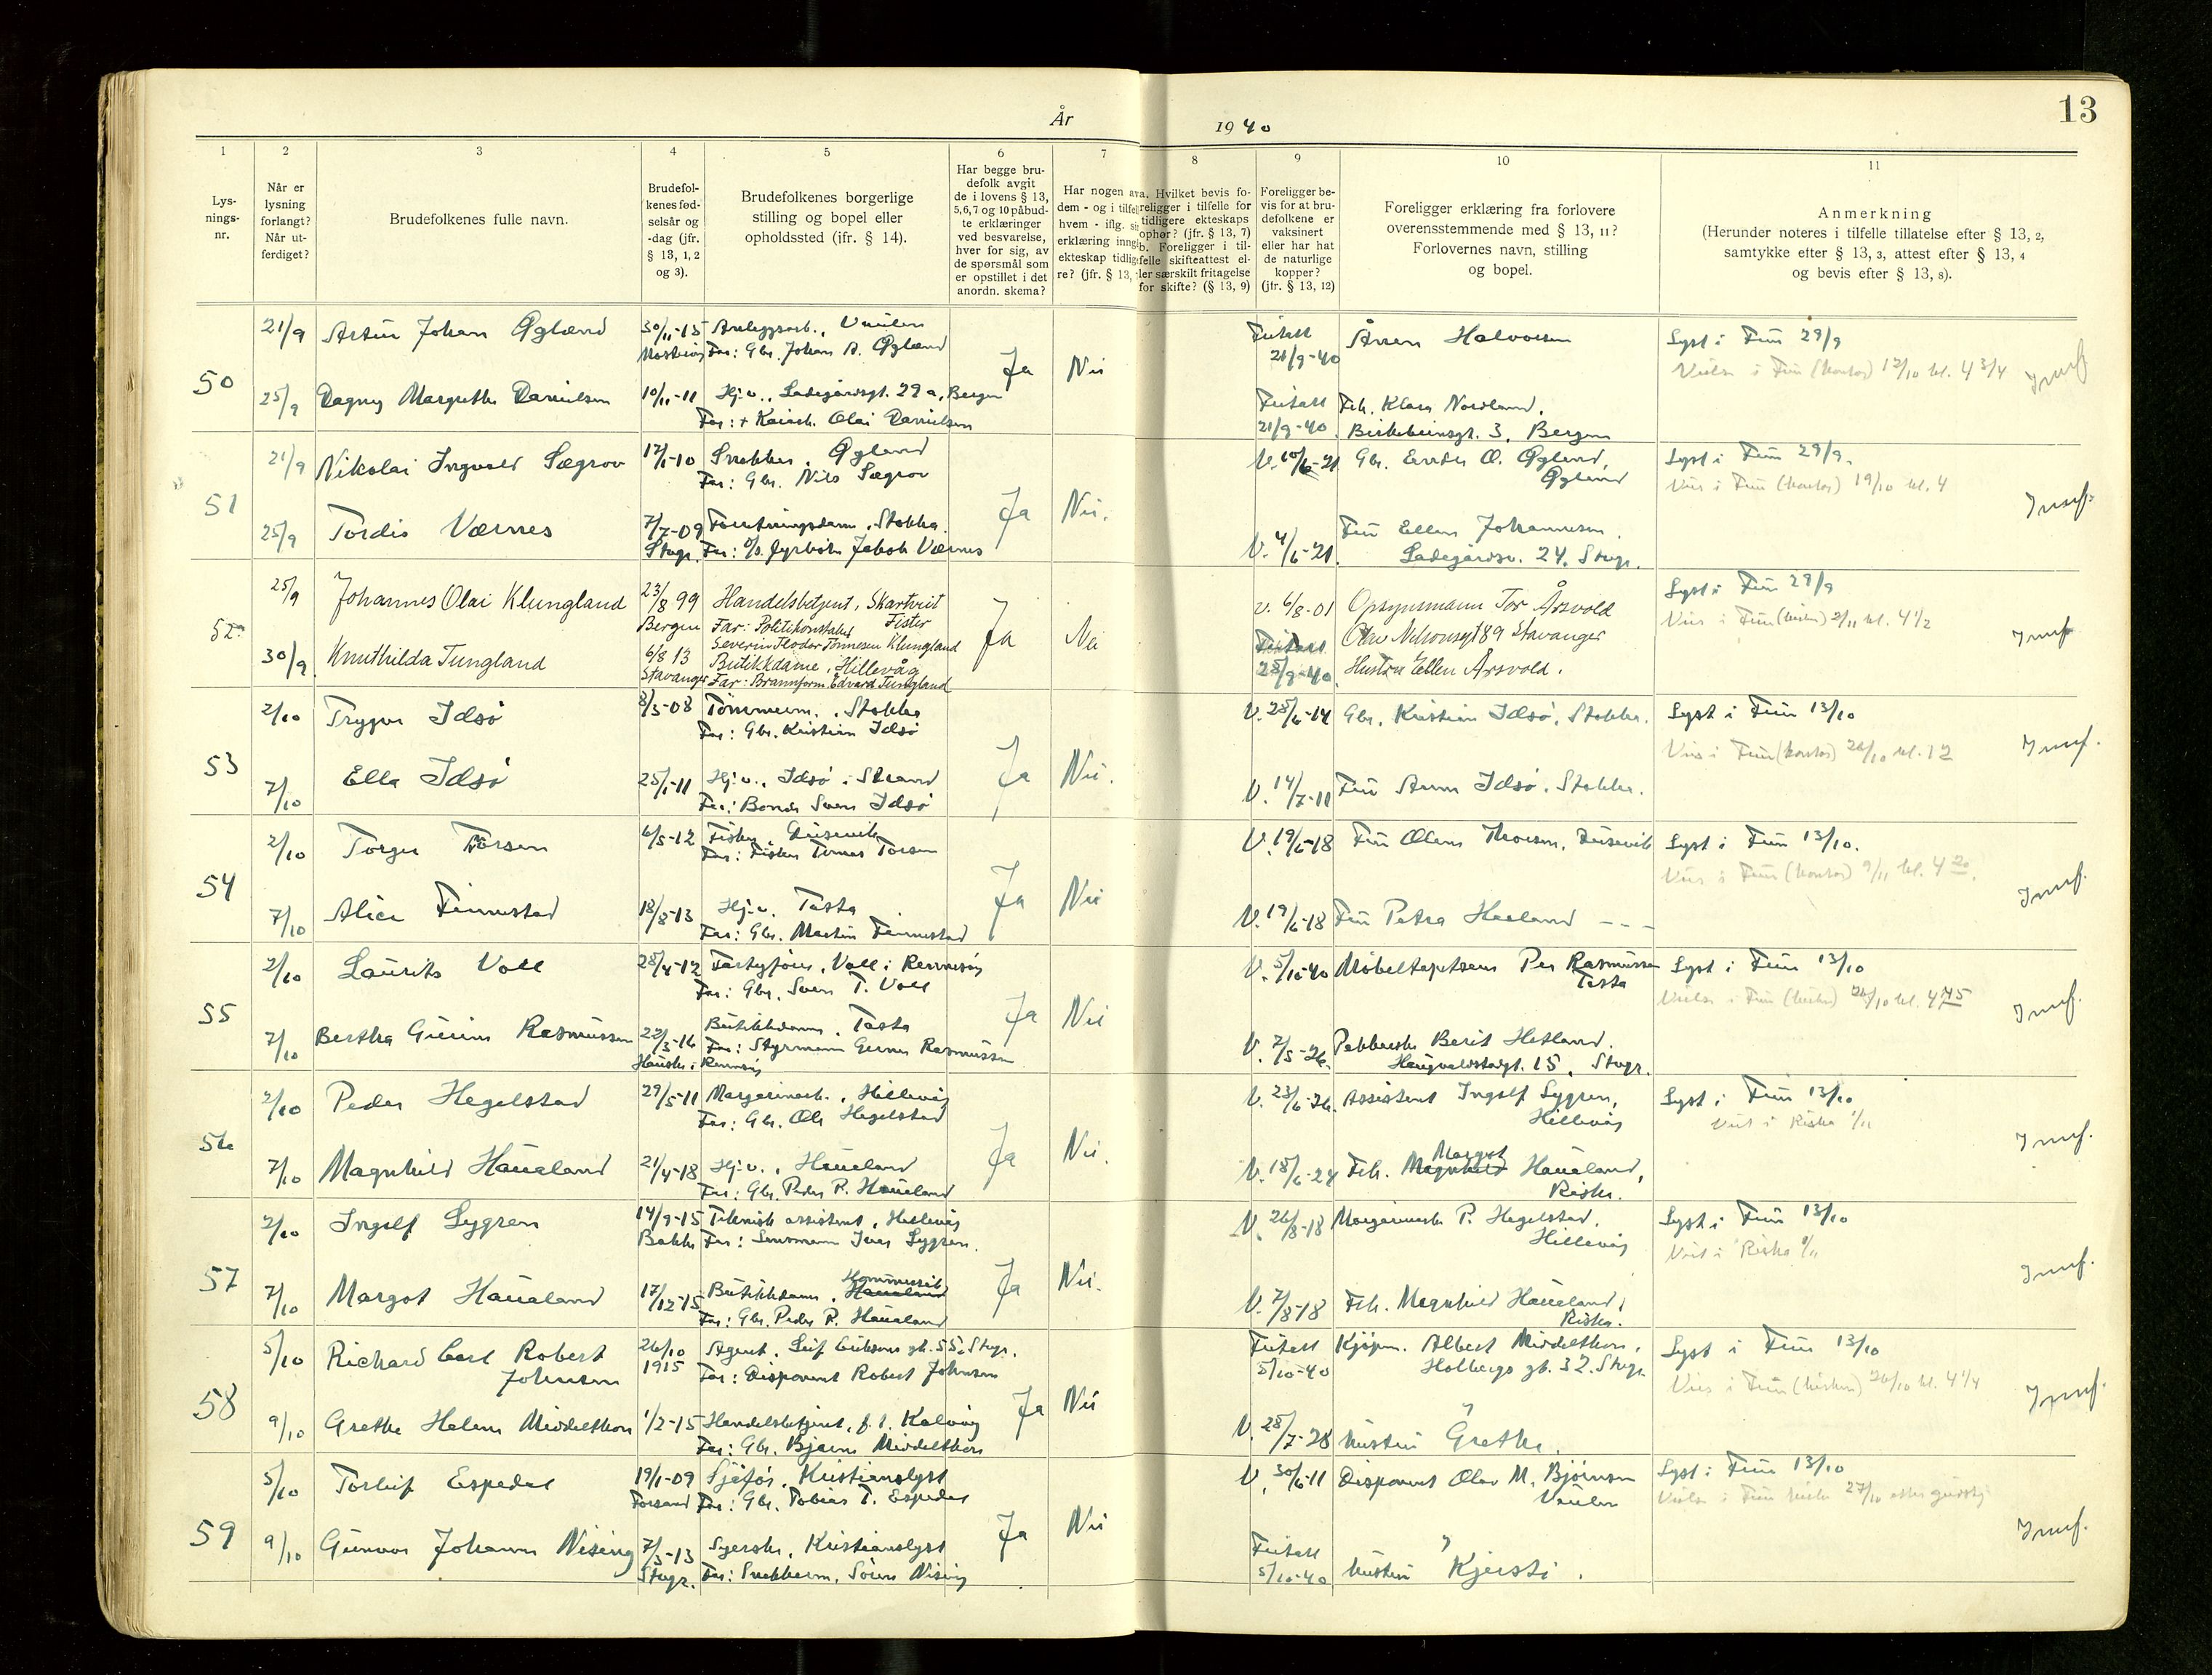 13
År 1940
1 2 3 4 5 6 7 8 9 10 11
Lys-
nings-
nr.
Når er
lysning
forlangt?
Når ut-
ferdiget?
Brudefolkenes fulle navn.
Brudefol-
kenes fød-
selsår og
-dag (jfr.
§ 13, 1, 2
og 3).
Brudefolkenes borgerlige
stilling og bopel eller
opholdssted (ifr. § 14).
Har begge bru-
defolk avgit
de i lovens § 13,
5,6,7 og 10 påbud-
te erklæringer
ved besvarelse,
hver for sig, av
de spørsmål som
er opstillet i det
anordn. skema?
Har nogen av
dem - og i tilfel
hvem - iflg.
erklæring inng
ekteskap tidlig
re? (jfr. § 13,
a. Hvilket bevis fo-
religger i tilfelle for
tidligere ekteskaps
ophør? (jfr. § 13, 7)
b. Foreligger i til-
felle skifteattest el-
ler særskilt fritagelse
for skifte? (§ 13, 9)
Foreligger be-
vis for at bru-
defolkene er
vaksinert
eller har hat
de naturlige
kopper?
(jfr. § 13, 12)
Foreligger erklæring fra forlovere
overensstemmende med § 13, 11?
Forlovernes navn, stilling
og bopel.
Anmerkning
(Herunder noteres i tilfelle tillatelse efter § 13, 2,
samtykke efter § 13, 3, attest efter § 13, 4
og bevis efter § 13, 8).
50
21/9 Artur Johan Øglænd 30/11-15 Anleggsarb., Vaulen
Far: Gbr. Johan A. Øglænd
Ja Nei
Friatt. 21/9-40
Lyst i Frue 29/9
Vielse i Frue (kontor) 12/10 kl. 4 3/4
25/9 Dagny Margrethe Danielsen 10/11-11 Hj.v., Ladegårdsgt. 29 a, Bergen
Far: + Kaiarb. Olai Danielsen
Friatt. 21/9-40 Frk. Klara Nordland,
Birkebeinsgt. 3, Bergen
51
21/9 Nikolai Ingvald Sægrov 17/1-10 Snekker, Øgland
Far: Gbr. Nils Sægrov
Ja Nei.
Øgland
Lyst i Frue 29/9.
Vies i Frue (kontor) 19/10 kl. 4
25/9 Tordis Værnes 7/7-09 Forretningsdame, Stokka
Stvgr. Far: Fyrbøter Jakob Værnes
V. 4/6-21. Fru Ellen Johannesen.
Ladegårdsv. 24. Stvgr.
52
25/9 Johannes Olai Klungland 23/8 99 Handelsbetjent, Skartveit
Bergen Far: Politikonstabel Fister
Severin Teodor Tønnesen Klungland
Ja Nei
v. 6/8-01 Opsynsmann Tor Årsvold
Olav Nilsonsgt 89 Stavanger
Lyst i Frue 29/9
Vies i Frue (kirken) 2/11 kl. 4 1/2
30/9 Knuthilda Tungland 6/8 13 Butikkdame, Hillevåg
Stavanger Far: Brannform. Edvard Tungland
28/9-40 Hustru Ellen Årsvold.
53
2/10 Trygve Idsø 8/3-08 Tømmerm., Stokka
Far: Gbr. Kristian Idsø
Ja Nei.
V. 25/6-14 Gbr. Kristian Idsø, Stokka.
Lyst i Frue 13/10
Vies i Frue (kontor) 26/10 kl. 12
7/10 Ella Idsø 25/1-11 Hj.v., Idsø i Strand
Far: Bonde Sven Idsø
V. 14/7-11 Fru Anna Idsø, Stokka.
54
2/10 Torger Thorsen 6/5-12 Fisker, Dusevik
Far: Fisker Tomas Torsen
Ja Nei
V. 19/6-18 Fru Olena Thorsen, Dusevik
Lyst i Frue 13/10.
Vies i Frue (kontor) 9/11 kl. 4 20.
7/10 Alice Finnestad 18/8-13 Hj.v. Tasta
Far: Gbr. Martin Finnestad
V. 19/6-18 Fru Petra Haaland - - -
55
2/10 Laurits Voll 28/4-12 Fartøyfører, Voll i Rennesøy
Far: Gbr. Sven T. Voll
Ja Nei
V. 5/10-40 Møbeltapetserer Per Rasmussen
Tasta
Lyst i Frue 13/10
Vielse i Frue (kirken) 26/10 kl. 4 45
7/10 Bertha Gurine Rasmussen 22/3-16 Butikkdame, Tasta
Far: Styrmann Gunnar Rasmussen
Hausken i Rennesøy
V. 7/5-26. Pakkerske Berit Hetland.
Haugvaldstadgt. 15, Stvgr.
56
2/10 Peder Hegelstad 29/5-11 Margarinarb., Hillevåg
Far: Gbr. Ole Hegelstad
Ja Nei.
V. 23/6-26. Assistent Ingolf Lygren,
Hillevåg
Lyst i Frue 13/10
Viet i Riska 1/11
7/10 Magnhild Haualand 21/4-18 Hj.v., Haualand
Far: Gbr. Peder P. Haualand
V. 18/6-24 Frk. Magnhild Margot Haualand,
Riska.
57
2/10 Ingolf Lygren 14/9-15 Teknisk assistent, Hillevåg
Bakke Far: Lensmann Iver Lygren.
Ja Nei.
V. 26/8-18 Margarinarb. P. Hegelstad,
Hillevåg
Lyst i Frue 13/10
Viet i Riska 1/11
7/10 Margot Haualand 17/12-15 Butikkdame, Haualand Hommersåk
Far: Gbr. Peder P. Haualand
V. 7/8-18 Frk. Magnhild Haualand,
Riska.
58
5/10 Richard Carl Robert
Johnsen
26/10 1915 Agent, Leif Eriksons gt. 55, Stvgr.
Far: Disponent Robert Johnsen
Ja Nei
Friatt. 5/10-40 Kjøpm. Albert Middelthon,
Holbergs gt. 32. Stvgr.
Lyst i Frue 13/10
Vies i Frue (kirken) 26/10 kl. 4 1/4
9/10 Grethe Helene Middelthon 1/2-15 Handelsbetjent, f. t. Kalvøy
Far: Gbr. Bjarne Middelthon
V. 28/7-28 Hustru " Grethe.
59
5/10 Torleif Espedal 19/1-09 Sjåfør, Kristianslyst
Forsand Far: Gbr. Tobias T. Espedal
Ja Nei
V. 30/6-11 Disponent Olav M. Bjørnsen
Vaulen
Lyst i Frue 13/10
Vielse i Frue kirke 27/10 etter gudstj.
9/10 Gunvor Johanne Nising 7/3-13 Syerske, Kristianslyst
Stvgr. Far: Snekkerm. Søren Nising
Friatt. 5/10-40 Hustru " Kjersti.